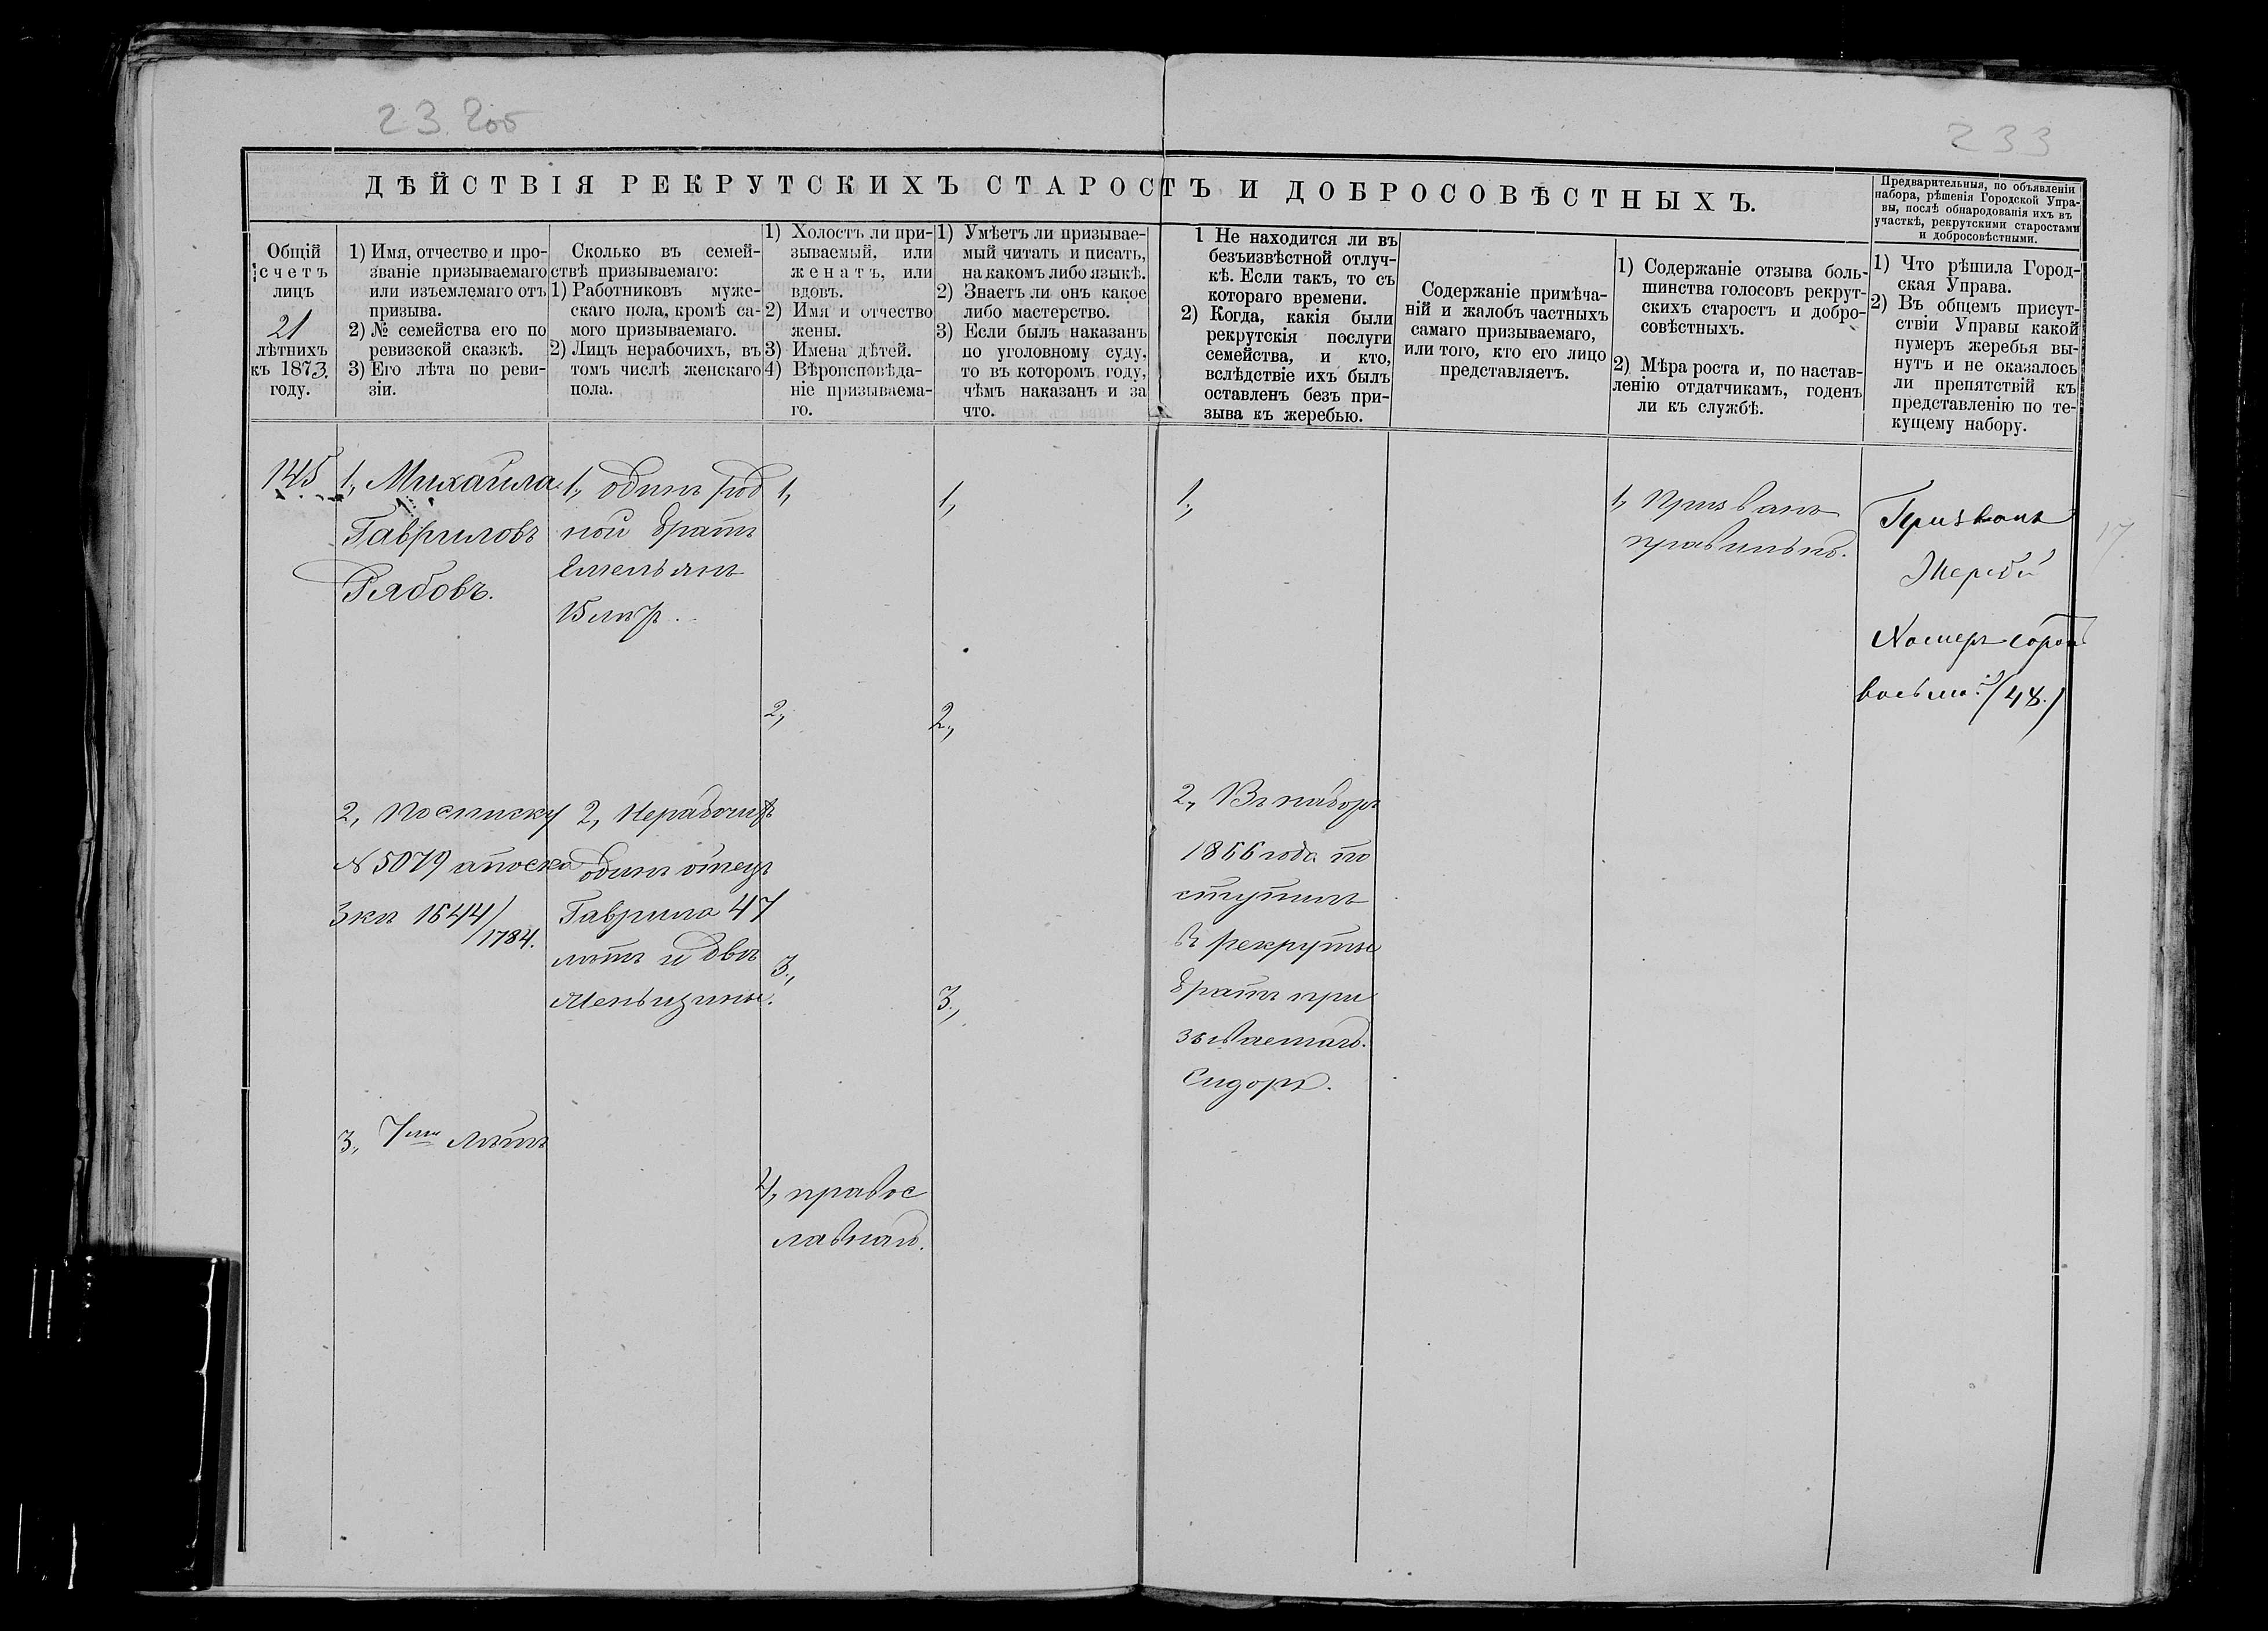 233
ДѢЙСТВІЯ РЕКРУТСКИХЪ СТАРОСТЪ И ДОБРОСОВѢСТНЫХЪ.
Предварительныя, по объявленіи
набора, рѣшенія Городской Упра-
вы, послѣ обнародованія ихъ въ
участкѣ, рекрутскими старостами
и добросовѣстными.
Общій
счетъ
лицъ
21
лѣтнихъ
къ 1873.
году.
1) Имя, отчество и про-
званіе призываемаго
или изъемлемаго отъ
призыва.
2) № семейства его по
ревизской сказкѣ.
3) Его лѣта по реви-
зіи.
Сколько въ семей-
ствѣ призываемаго:
1) Работниковъ муже-
скаго пола, кромѣ са-
мого призываемаго.
2) Лицъ нерабочихъ, въ
томъ числѣ женскаго
пола.
1) Холостъ ли при-
зываемый, или
женатъ, или
вдовъ.
2) Имя и отчество
жены.
3) Имена дѣтей.
4) Вѣроисповѣда-
ніе призываема-
го.
1) Умѣетъ ли призывае-
мый читать и писать,
на какомъ либо языкѣ.
2) Знаетъ ли онъ какое
либо мастерство.
3) Если былъ наказанъ
по уголовному суду,
то въ которомъ году,
чѣмъ наказанъ и за
что.
1 Не находится ли въ
безъизвѣстной отлуч-
кѣ. Если такъ, то съ
котораго времени.
2) Когда, какія были
рекрутскія послуги
семейства, и кто,
вслѣдствіе ихъ былъ
оставленъ безъ при-
зыва къ жеребью.
Содержаніе примѣча-
ній и жалобъ частныхъ
самаго призываемаго,
или того, кто его лицо
представляетъ.
1) Содержаніе отзыва боль-
шинства голосовъ рекрут-
скихъ старостъ и добро-
совѣстныхъ.
2) Мѣра роста и, по настав-
ленію отдатчикамъ, годенъ
ли къ службѣ.
1) Что рѣшила Город-
ская Управа.
2) Въ общемъ присут-
ствіи Управы какой
нумеръ жеребья вы-
нутъ и не оказалось
ли препятствій къ
представленію по те-
кущему набору.
145
1, Михайла
Гавриловъ
Рябовъ.
2, По списку
№ 5079 а по ска
зкѣ 1644/
1784.
3, 7ми лѣтъ
1, одинъ род
ной братъ
Емельянъ
15 лѣтъ.
2, Нерабочихъ
одинъ отецъ
Гаврила 47
лѣтъ и двѣ
женьщины.
1,
2,
3,
4, правос
лавнаго.
1,
2,
3,
1,
2, Въ наборъ
1866 года по
ступилъ
въ рекруты
братъ при
зываемаго
Сидоръ.
1, Призванъ
правильно.
Призванъ
Жеребій
Номеръ сорокъ
восьмой (48.)
17